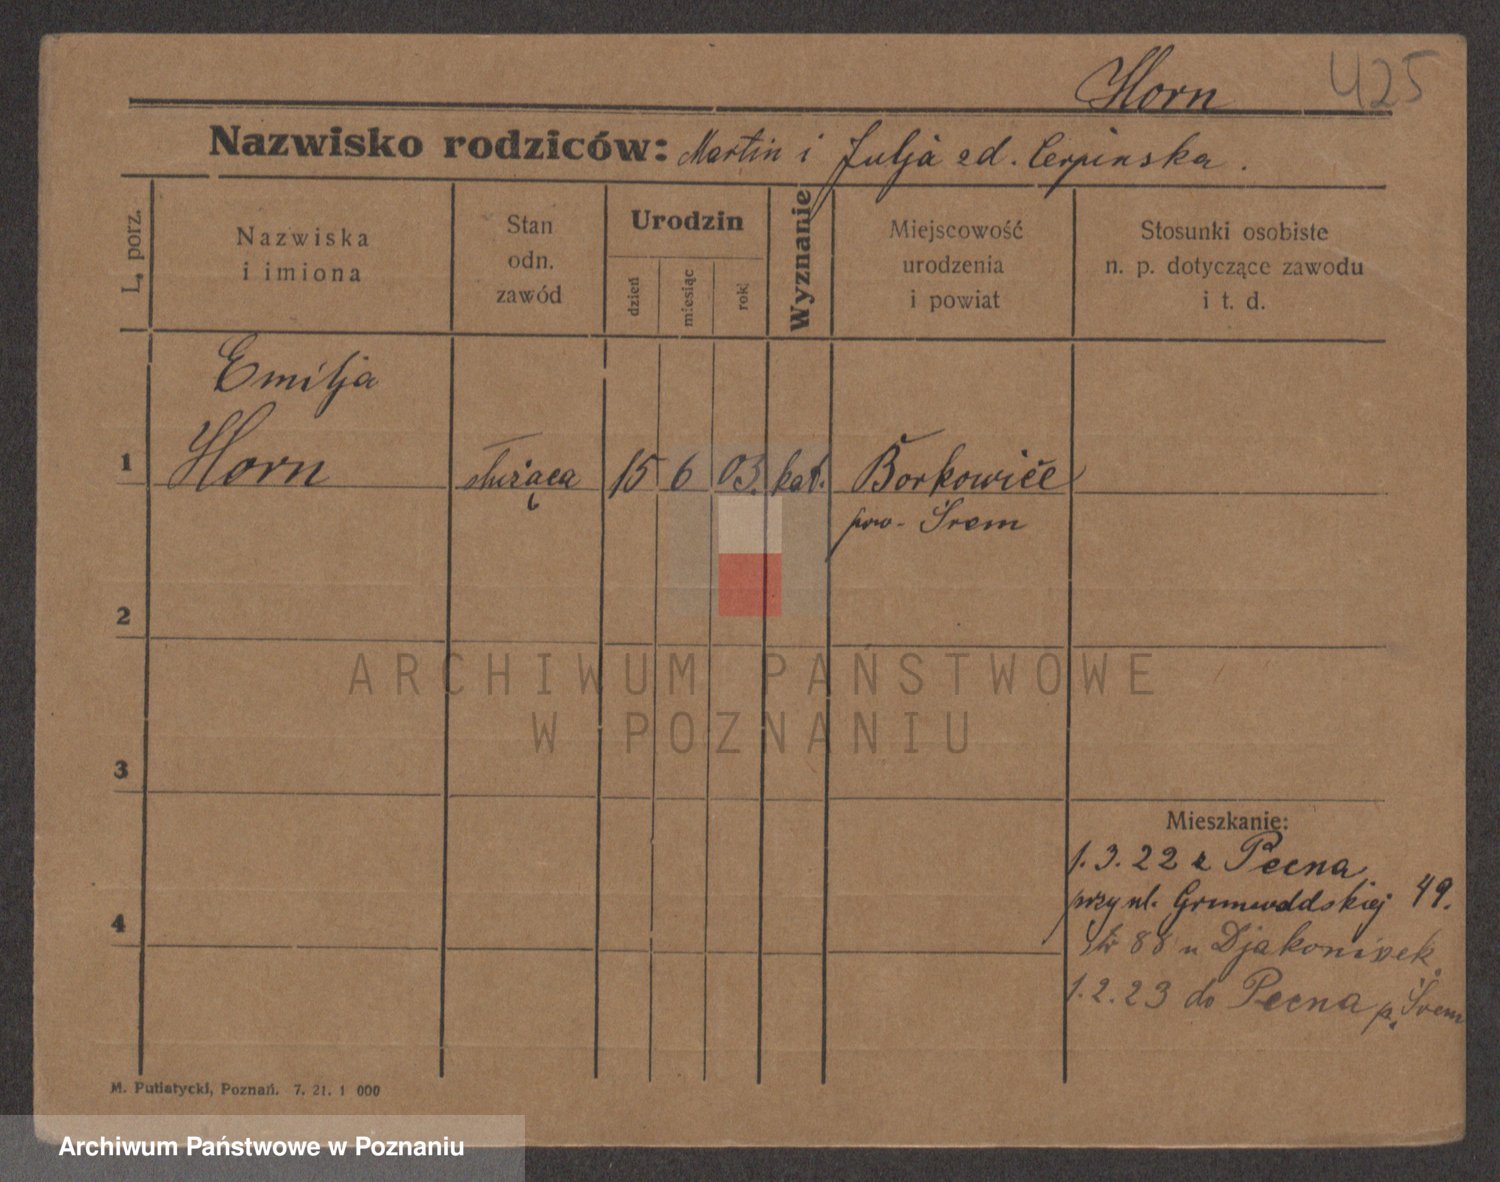 Horn 425
Nazwisko rodziców: Martin i Julja zd. Cerpinska.
L. porz.
Nazwiska
i imiona
Stan
odn.
zawód
Urodzin
dzień
miesiąc
rok
Wyznanie
Miejscowość
urodzenia
i powiat
Stosunki osobiste
n. p. dotyczące zawodu
i t. d.
Emilja
1 Horn służąca 15 6 03. kat. Borkowice
pow. Śrem
2
3
4
Mieszkanie:
1. 3. 22 z Pecna
przy ul. Grunwaldskiej 49.
88 u Djakonisek
1. 2. 23 do Pecna p. Śrem
M. Putiatycki, Poznań. 7. 21. 1 000
ARCHIWUM PAŃSTWOWE
W POZNANIU
Archiwum Państwowe w Poznaniu